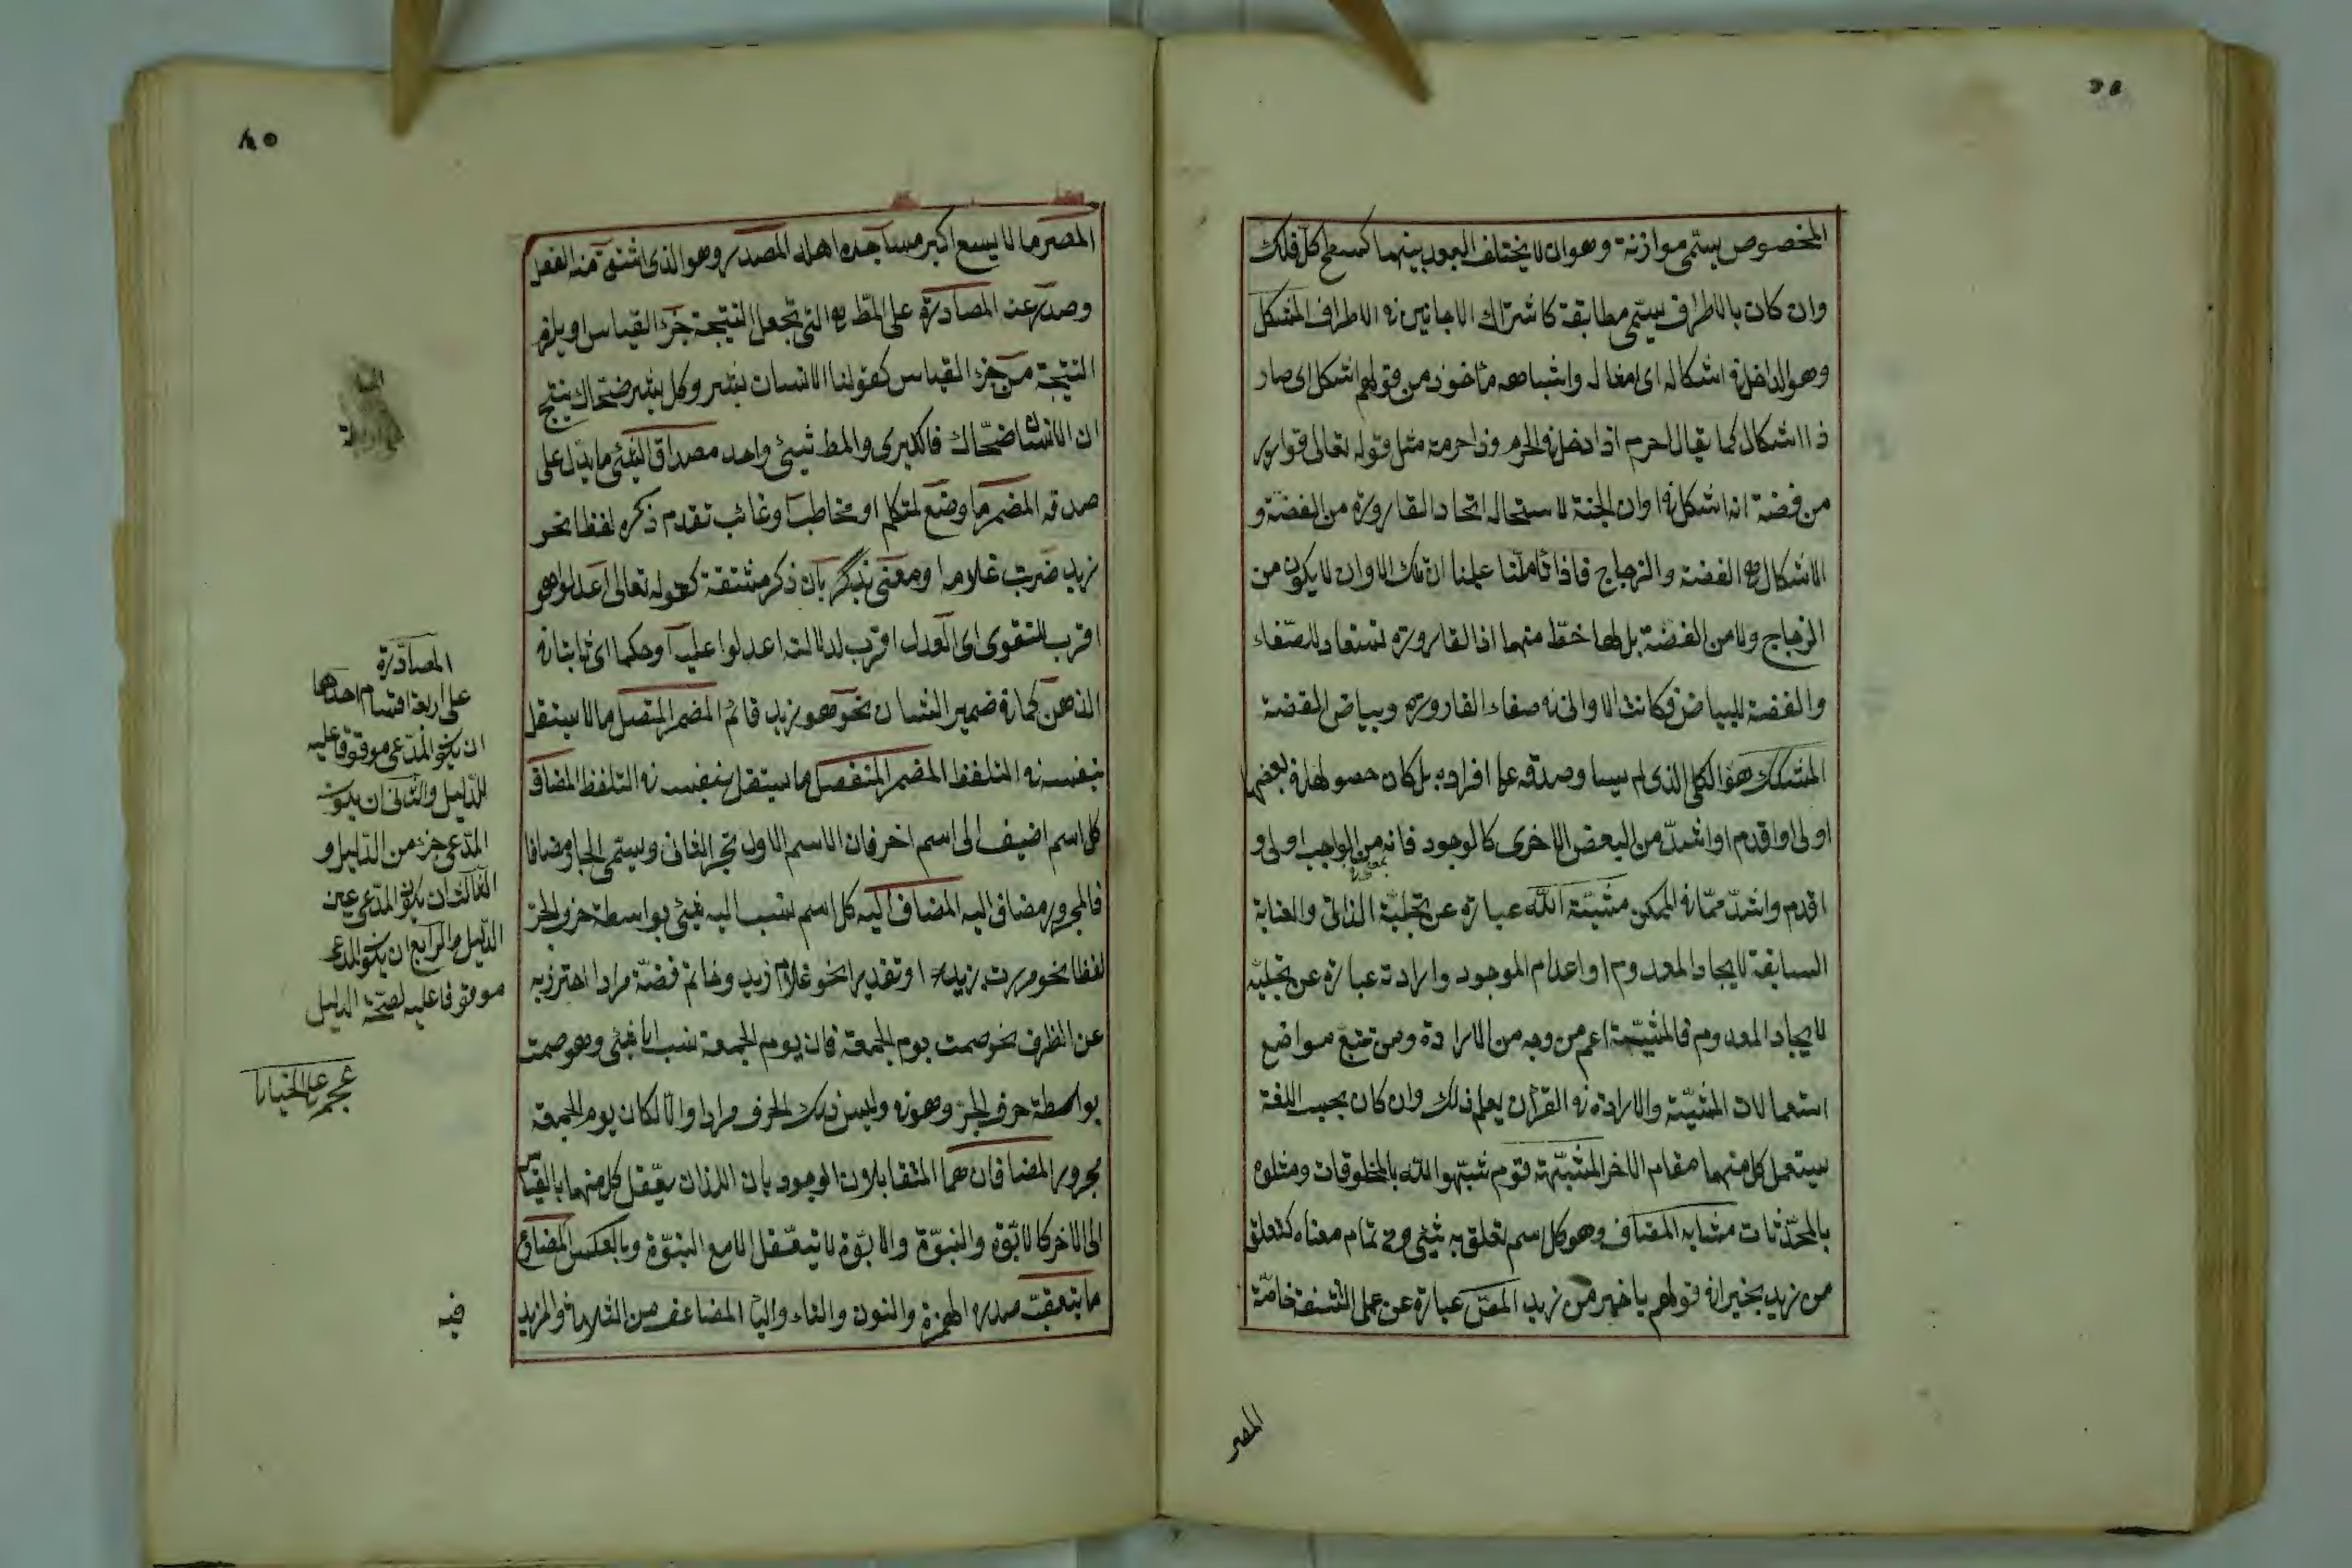 المخصوص يسمى موازنة وهو ان لا يختلف البعد بينهما كسطح كل فلك
وان كان بالاطراف يسمى مطابقة كاشتراك الاجانين فى الاطراف المشكل
وهو الداخل فى اشكاله اى امثاله واشباهه مأخوذ من قولهم اشكل اى صار
ذا اشكال كما يقال احرم اذا دخل فى الحرم وذا حرمة مثل قوله تعالى قوارير
من فضة انه اشكل فى اوان الجنة لاستحالة اتحاد القارورة من الفضة و
الاشكال هو الفضة والزجاج فاذا تأملنا علمنا ان تلك الاوان لا يكون من
الزجاج ولا من الفضة بل لها حظ منهما اذ القارورة تستعار للصفاء
والفضة للبياض فكانت الاوانى فى صفاء القارورة وبياض الفضة
المشكك هو الكلى الذى لم يساو صدقه على افراده بل كان حصولها فى بعضها
اولى او اقدم او اشد من البعض الاخرى كالوجود فانه من الواجب اولى و
اقدم واشد ممّا فى الممكن مشيّة الله عبارة عن تجليّة الذاتى والعناية
السابقة لايجاد المعدوم او اعدام الموجود وارادته عبارة عن تجليه
لايجاد المعدوم فالمشيّة اعم من وجه من الارادة ومن تتبع مواضع
استعمالات المشيّة والارادة فى القرآن يعلم ذلك وان كان بحسب اللغة
يستعمل كل منهما مقام الاخر المشبّهة قوم شبّهوا الله بالمخلوقات ومثلوه
بالمحدثات مشابه المضاف وهو كل اسم تعلق به شئ وهو تمام معناه كتعلق
من زيد بخير فى قولهم يا خيرا من زيد المصّ عبارة عن عمل الشفة خاصّة
المصر
المصر ما لا يسع اكبر مساجده اهله المصدر وهو الذى اشتق منه الفعل
وصدر عنه المصادرة على المط هى التى تجعل النتيجة جزء القياس او يلزم
النتيجة من جزء القياس كقولنا الانسان بشر وكل بشر ضحاك ينتج
ان الانسان ضحّاك فالكبرى والمط شيئ واحد مصداق الشئ ما يدل على
صدقه المضمر ما وضع لمتكلم او مخاطب او غائب تقدم ذكره لفظا نحو
زيد ضربت غلامه او معنى بان ذكر مشتقه كقوله تعالى اعدلوا هو
اقرب للتقوى اى العدل اقرب لدلالة اعدلوا عليه او حكما اى ثابتا فى
الذهن كما فى ضمير الشان نحو هو زيد قائم المضمر المتصل ما لا يستقل
بنفسه فى التلفظ المضمر المنفصل ما يستقل بنفسه فى التلفظ المضاف
كل اسم اضيف الى اسم اخر فان الاسم الاول يجر الثانى ويسمى الجار مضافا
فالمجرور مضافا اليه المضاف اليه كل اسم نسب اليه شئ بواسطة حرف الجر
لفظا نحو مررت بزيد او تقديرا نحو غلام زيد وخاتم فضّة مرادا احترز به
عن الظرف نحو صمت يوم الجمعة فان يوم الجمعة نسب اليه شئ وهو صمت
بواسطة حرف الجر وهو فى وليس ذلك الحرف مرادا والا لكان يوم الجمعة
مجرورا المضافان هما المتقابلان الوجوديان اللذان يعّقل كل منهما بالقياس
الى الاخر كالابوة والبنوّة والابوّة لا يتعقّل الا مع البنوّة وبالعكس المضارع
ما يتعقب صدره الهمزة والنون والتاء والياء المضاعف من الثلاثى والمزيد
المصادرة
على اربعة اقسام احدها
ان يكون المدّعى موقوفا عليه
للدليل والثانى ان يكون
المدّعى جزء من الدليل و
الثالث ان يكون المدّعى عين
الدليل والرابع ان يكون المدعى
موقوفا عليه لصحّة الدليل
فيه